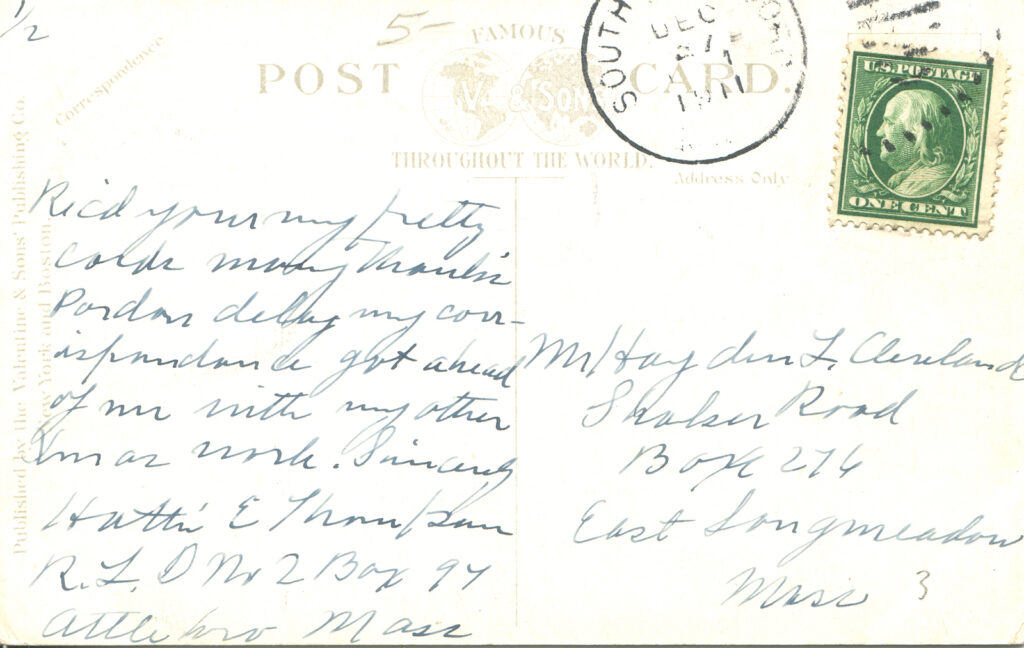 1/2
5-
Correspondence
FAMOUS
POST CARD.
V. & SONS
THROUGHOUT THE WORLD.
Address Only
SOUTH
DEC
27
1911
U.S. POSTAGE
ONE CENT
Published by the Valentine & Sons' Publishing Co.
New York and Boston.
Rec'd your my pretty
cards many thanks
Pardon delay my corr-
ispondance got ahead
of me with my other
Xmas work. Sincerely
Hattie E Thompson
R. F. D No 2 Box 97
Attleboro Mass
Mr Hayden L. Cleveland
Shaker Road
Box 276
East Longmeadow
Mass
3